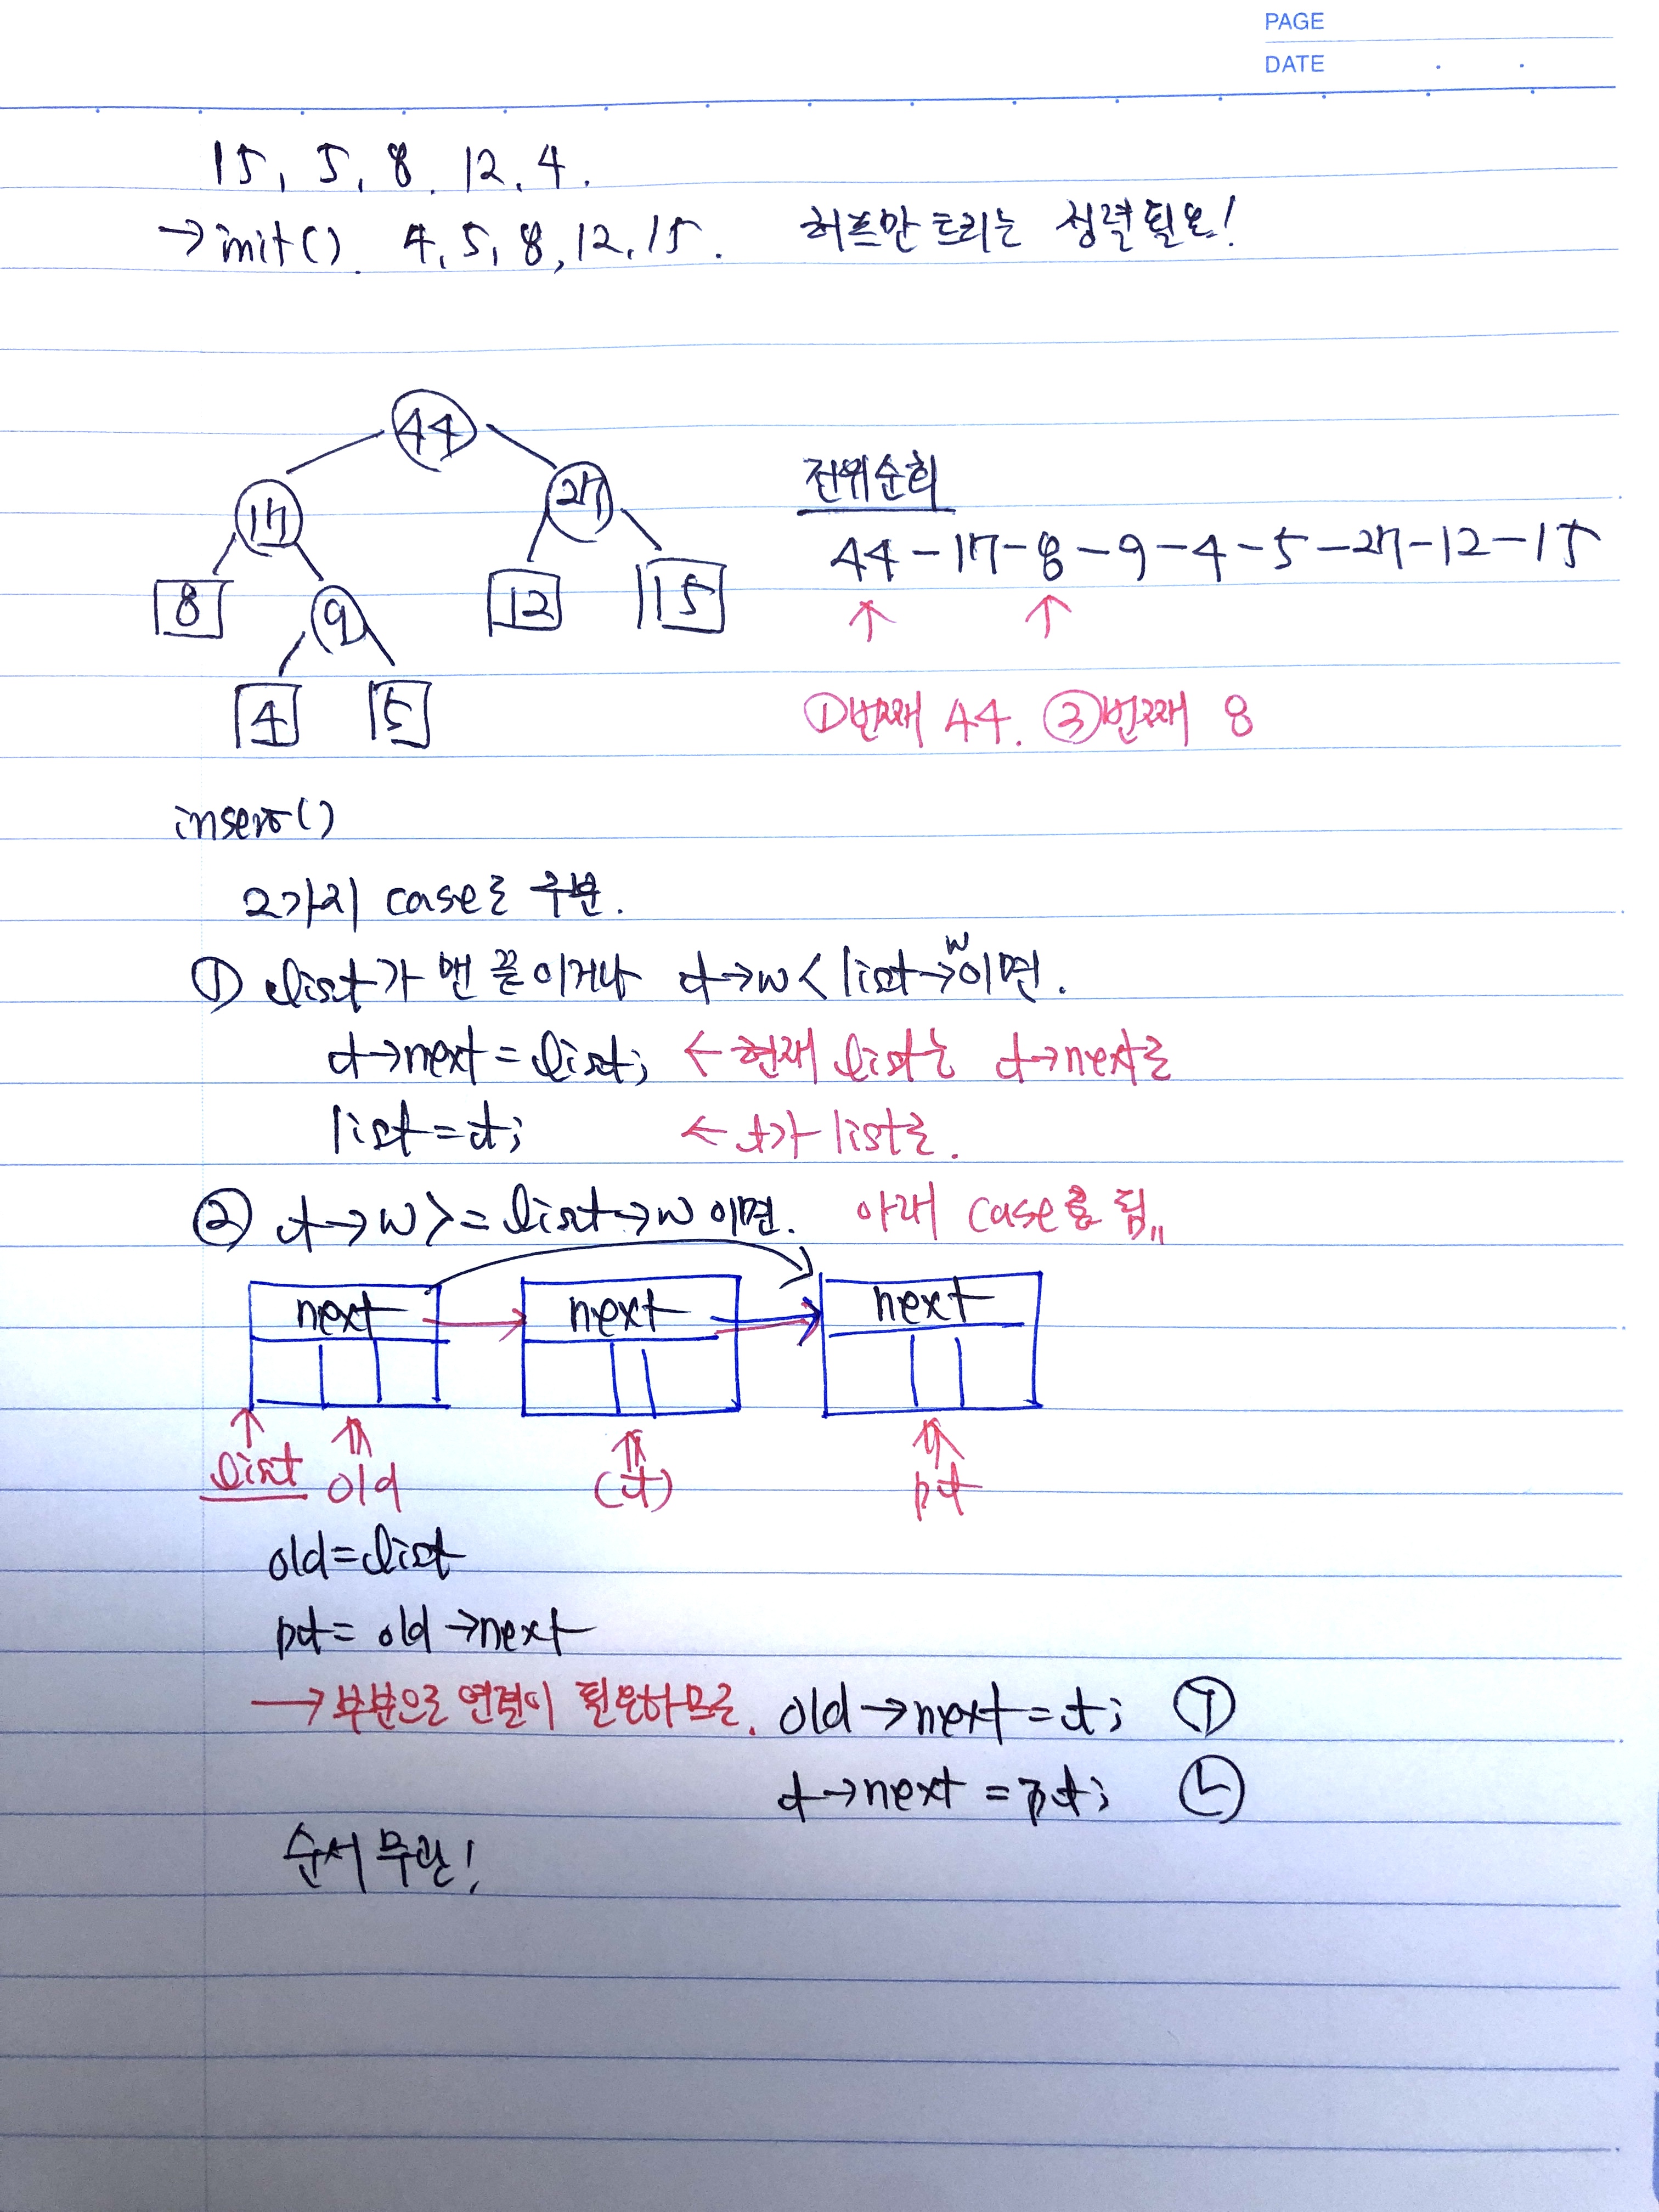 PAGE
DATE
15, 5, 8, 12, 4.
→ init(). 4, 5, 8, 12, 15. 허프만 트리는 정렬필요!
44
17 27
8 9 12 15
4 5
전위순회
44-17-8-9-4-5-27-12-15
↑ ↑
①번째 44. ③번째 8
insert()
2가지 case로 구분.
① list가 맨 끝이거나 t→w < list→w이면.
t→next = list; ← 현재 list는 t→next로
list = t; ← t가 list로.
② t→w >= list→w이면. 아래 case를 됨"
next next next
list old (t) pt
old = list
pt = old→next
→ 부분으로 연결이 필요하므로. old→next = t; ㉠
t→next = pt; ㉡
순서 무관!